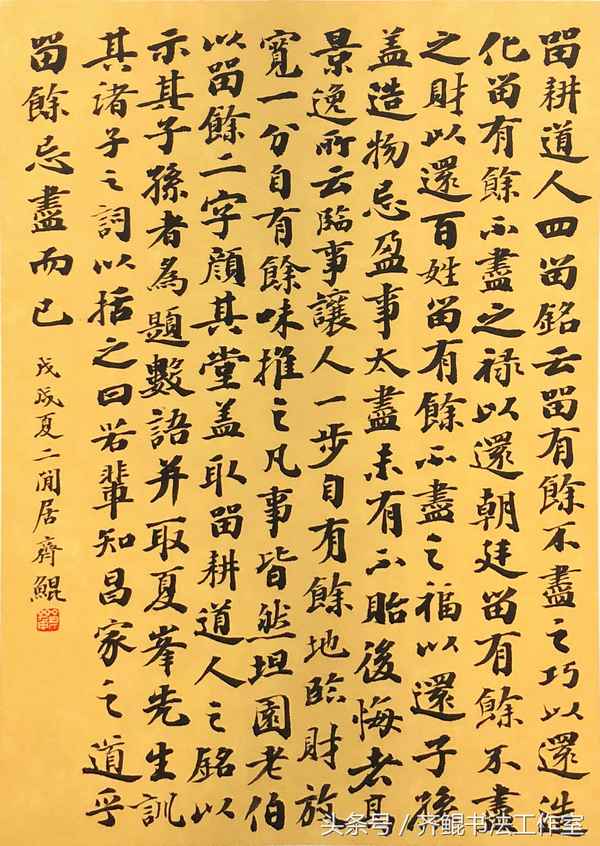 畱耕道人四畱銘云畱有餘不盡之巧以還造
化畱有餘不盡之禄以還朝廷畱有餘不盡
之財以還百姓畱有餘不盡之福以還子孫
盖造物忌盈事太盡未有不貽後悔者高
景逸所云臨事讓人一步自有餘地臨財放
寬一分自有餘味推之凡事皆然坦園老伯
以畱餘二字顔其堂盖取畱耕道人之銘以
示其子孫者為題數語并取夏峯先生訓
其諸子之詞以括之曰若輩知昌家之道乎
畱餘忌盡而已
戊戌夏二閒居齊鯤
头条号／齐鲲书法工作室